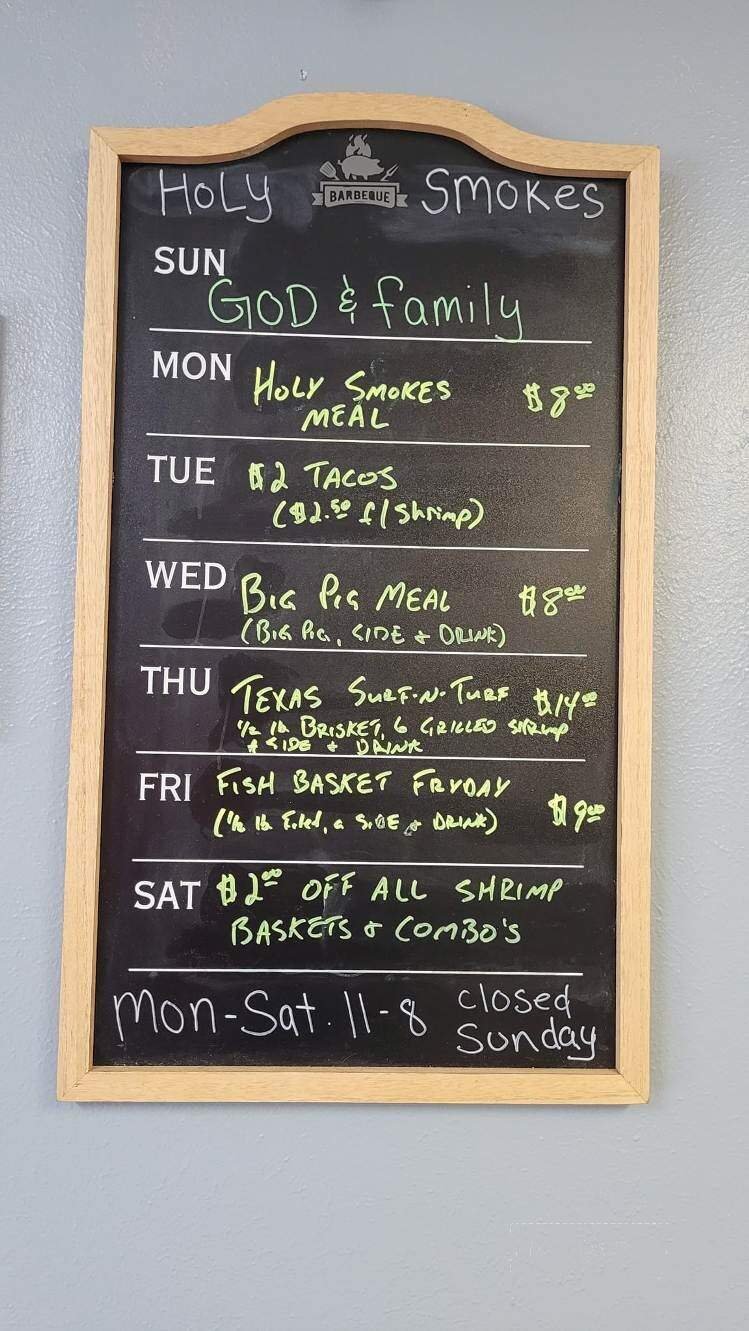 HOLY BARBEQUE SMOKES
SUN
GOD & family
MON
HOLY SMOKES $8.00
MEAL
TUE $2 TACOS
($2.50 f/Shrimp)
WED
BIG PIG MEAL $8.00
(BIG PIG, SIDE & DRINK)
THU
TEXAS SURF-N-TURF $14.00
1/2 lb BRISKET, 6 GRILLED SHRIMP
+ SIDE + DRINK
FRI FISH BASKET FRYDAY
lb Filet, a SIDE & DRINK) $9.00
SAT $2.00 OFF ALL SHRIMP
BASKETS & COMBO'S
Mon-Sat. 11-8 closed
Sunday